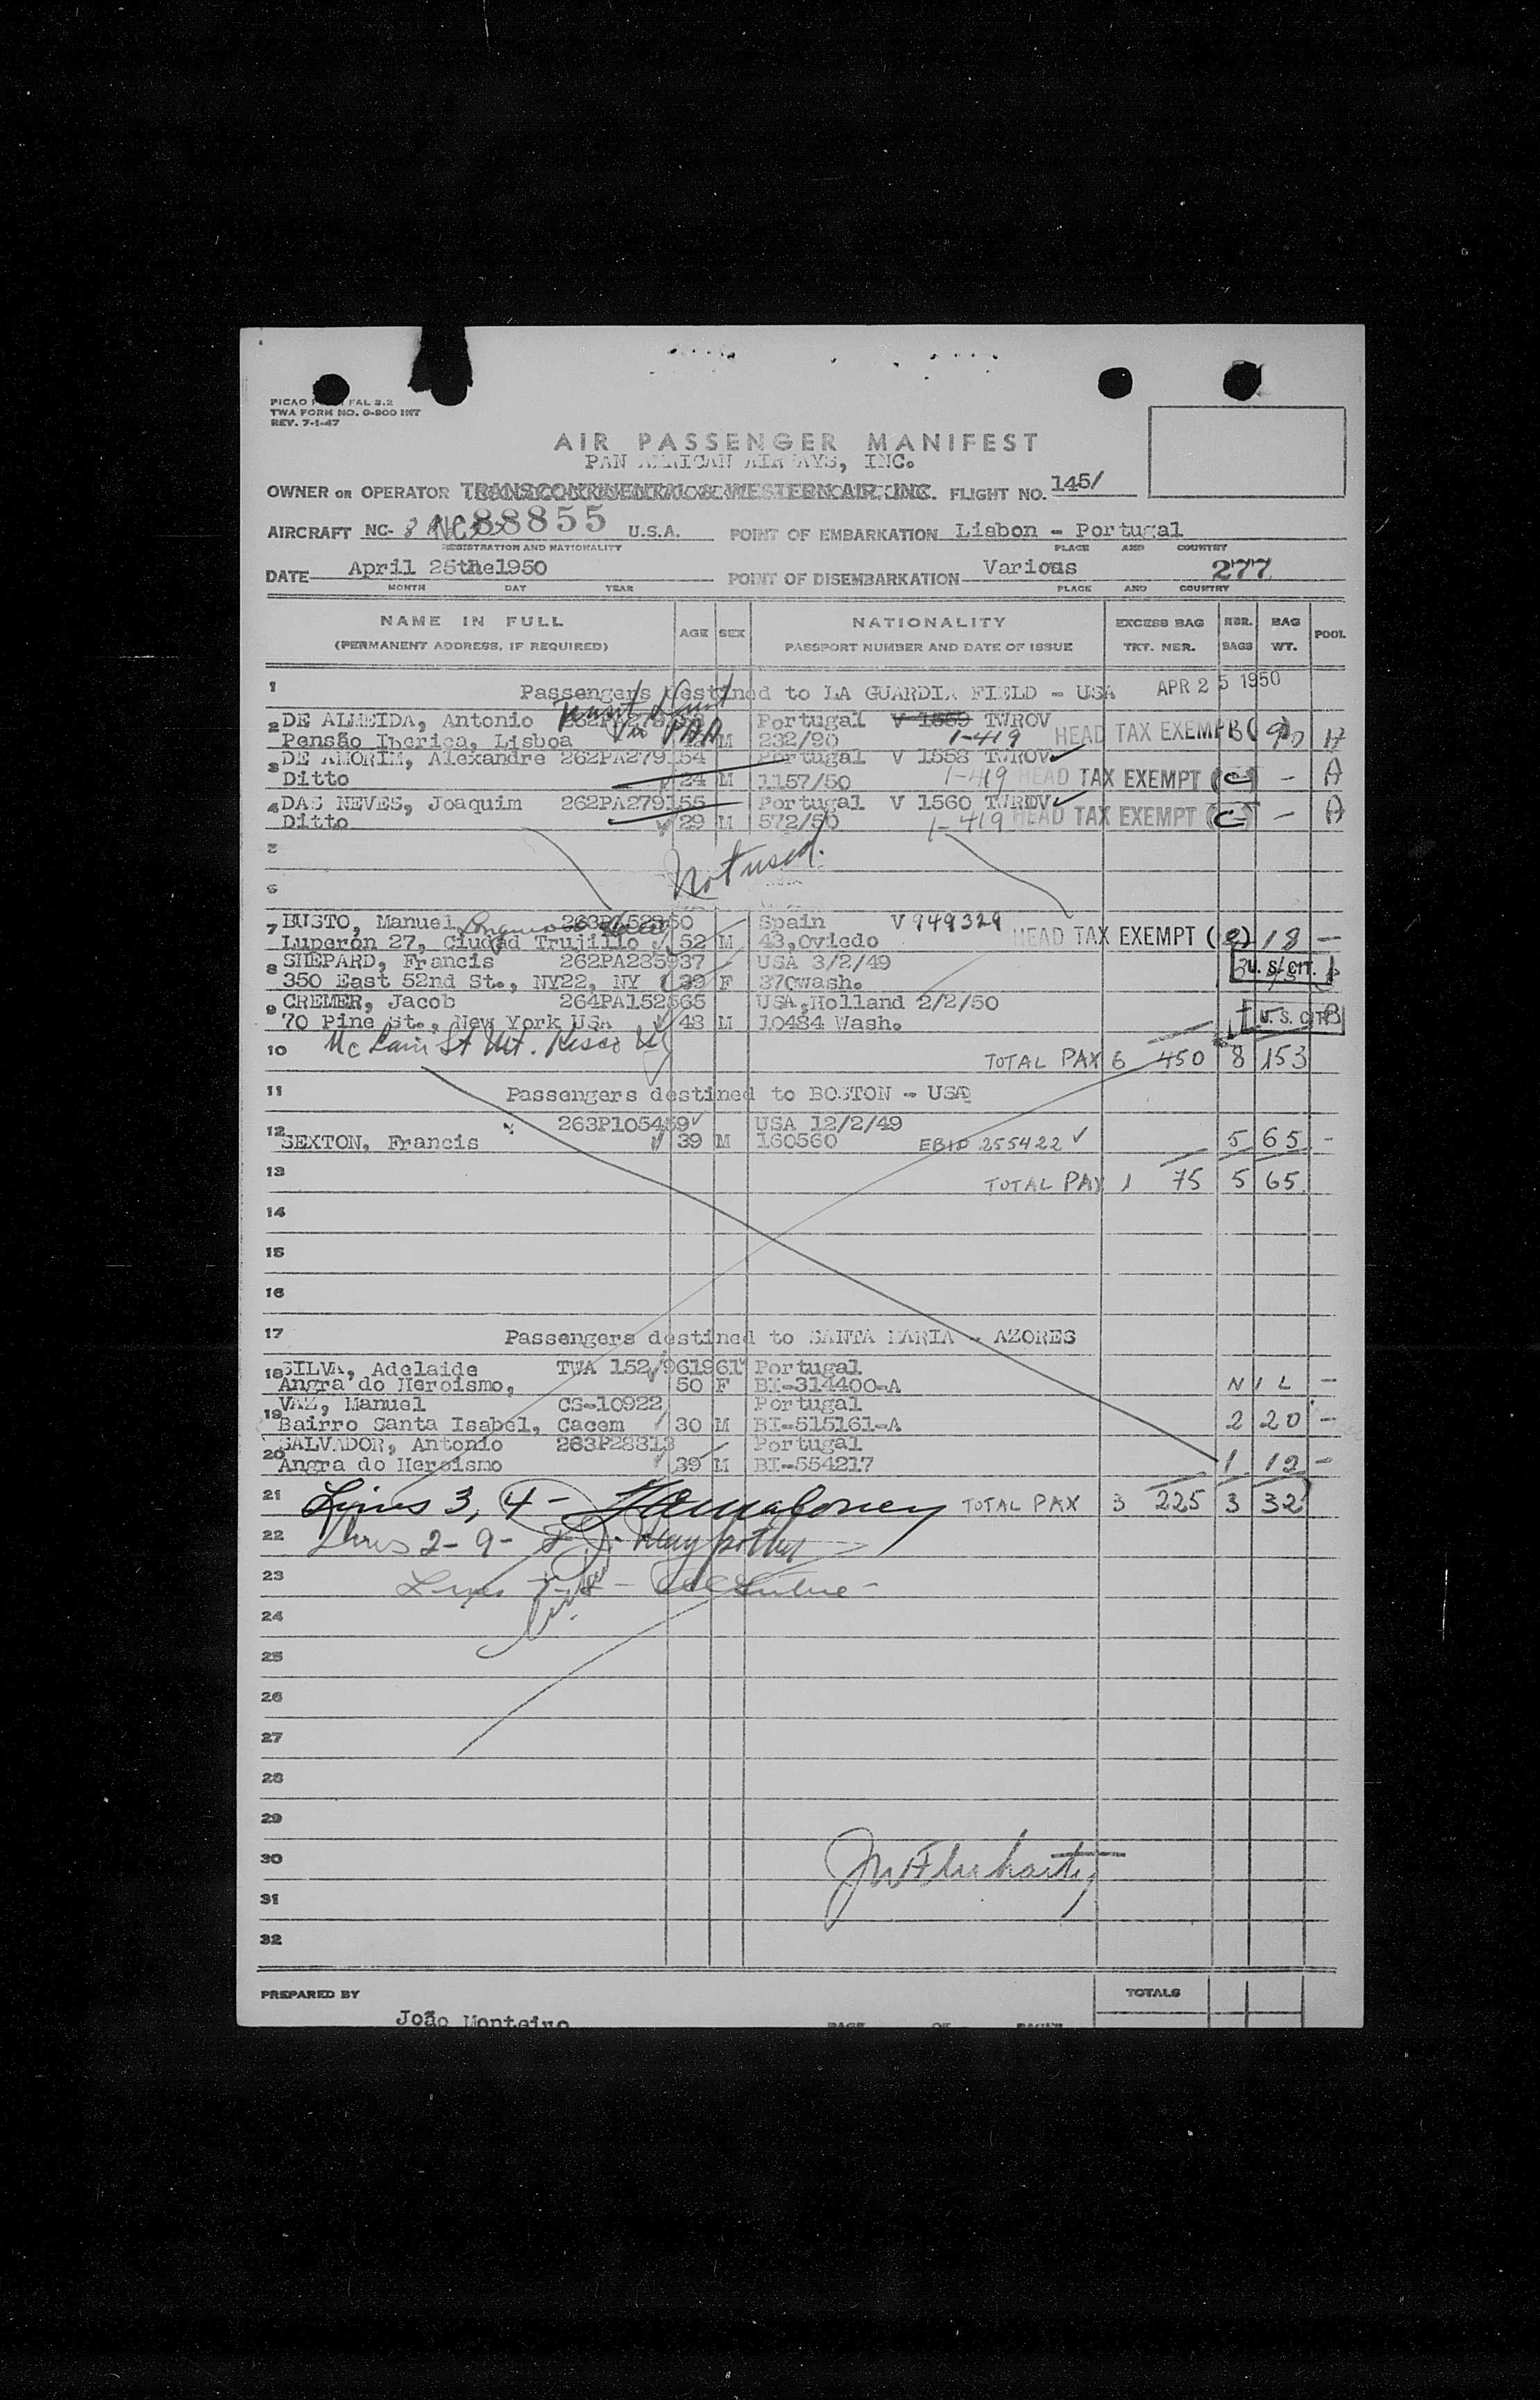 TWA FORM NO. 0-900 INT
REV. 7-1-47
AIR PASSENGER MANIFEST
PAN AMRICAN AIRWAYS, INC.
OWNER OR OPERATOR TRANSCONTINENTAL & WESTERN AIR. INC. FLIGHT NO. 145/
AIRCRAFT NC- 88855 U.S.A. POINT OF EMBARKATION Lisbon - Portugal
REGISTRATION AND NATIONALITY PLACE AND COUNTRY
DATE April 25the1950 POINT OF DISEMBARKATION Various 277
MONTH DAY YEAR PLACE AND COUNTRY
NAME IN FULL AGE SEX NATIONALITY EXCESS BAG NBR. BAG POOL
(PERMANENT ADDRESS, IF REQUIRED) PASSPORT NUMBER AND DATE OF ISSUE TKT. NBR. BAGS WT.
1 Passengers destined to LA GUARDIA FIELD - USA APR 25 1950
2 DE ALMEIDA, Antonio Portugal V 1559 TWROV
Pensão Iberica, Lisboa Via PAA M 232/90 1-419 HEAD TAX EXEMP
3 DE AMORIM, Alexandre 262PA279154 Portugal V 1558 TWROV
Ditto 24 M 1157/50 1-419 HEAD TAX EXEMPT (C) - A
4 DAS NEVES, Joaquim 262PA279155 Portugal V 1560 TWROV
Ditto 29 M 572/50 1-419 HEAD TAX EXEMPT (C) - A
5
Not used.
6
7 BUSTO, Manuel Spain V 949329
Luperon 27, Ciudad Trujillo 52 M 43,Oviedo HEAD TAX EXEMPT (2) 18 -
8 SHEPARD, Francis 262PA285937 USA 3/2/49
350 East 52nd St., NY22, NY 39 F 370wash. U. S. CIT.
9 CREMER, Jacob 264PA152565 USA,Holland 2/2/50
70 Pine St., New York USA 48 M 10484 Wash. U. S. CIT. B
10 Mt. Kisco TOTAL PAX 6 450 8 153
11 Passengers destined to BOSTON - USA
263P105459 USA 12/2/49
12 SEXTON, Francis 39 M 160560 EBID 255422 5 65 -
13 TOTAL PAX 1 75 5 65
14
15
16
17 Passengers destined to SANTA MARIA - AZORES
18 SILVA, Adelaide TWA 152/961961 Portugal
Angra do Heroismo, 50 F BI-314400-A NIL -
19 VAZ, Manuel CS-10922 Portugal
Bairro Santa Isabel, Cacem 30 M BI-515161-A 2 20 -
20 SALVADOR, Antonio 263P28313 Portugal
Angra do Heroismo 39 M BI-554217 1 12 -
21 Lines 3, 4 - TOTAL PAX 3 225 3 32
22 Lines 2-9-
23
24
25
26
27
28
29
30
31
32
PREPARED BY TOTALS
João Monteiro